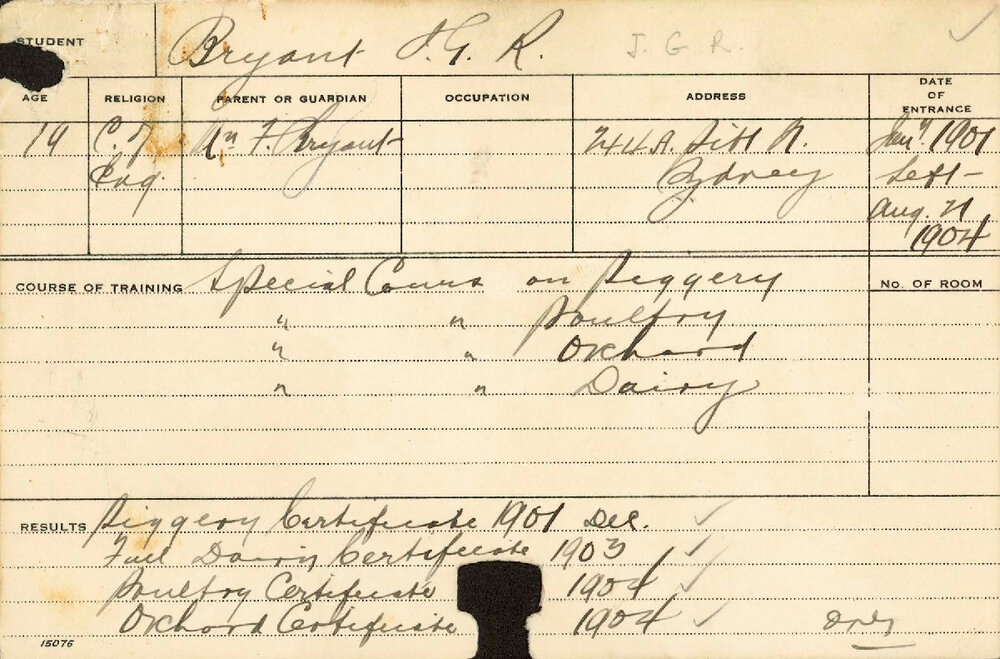 STUDENT Bryant J. G. R. J. G. R.
AGE RELIGION PARENT OR GUARDIAN OCCUPATION ADDRESS DATE OF ENTRANCE
19 C. of F. Bryant 244A. Pitt N. Jany 1901
Eng. Sydney Left -
Aug. 21
1904
COURSE OF TRAINING Special Course on Piggery No. OF ROOM
" " Poultry
" " Orchard
" " Dairy
RESULTS Piggery Certificate 1901 Dec. ✓
Full Dairy Certificate 1903 ✓
Poultry Certificate 1904 ✓
Orchard Certificate 1904 ✓
15076